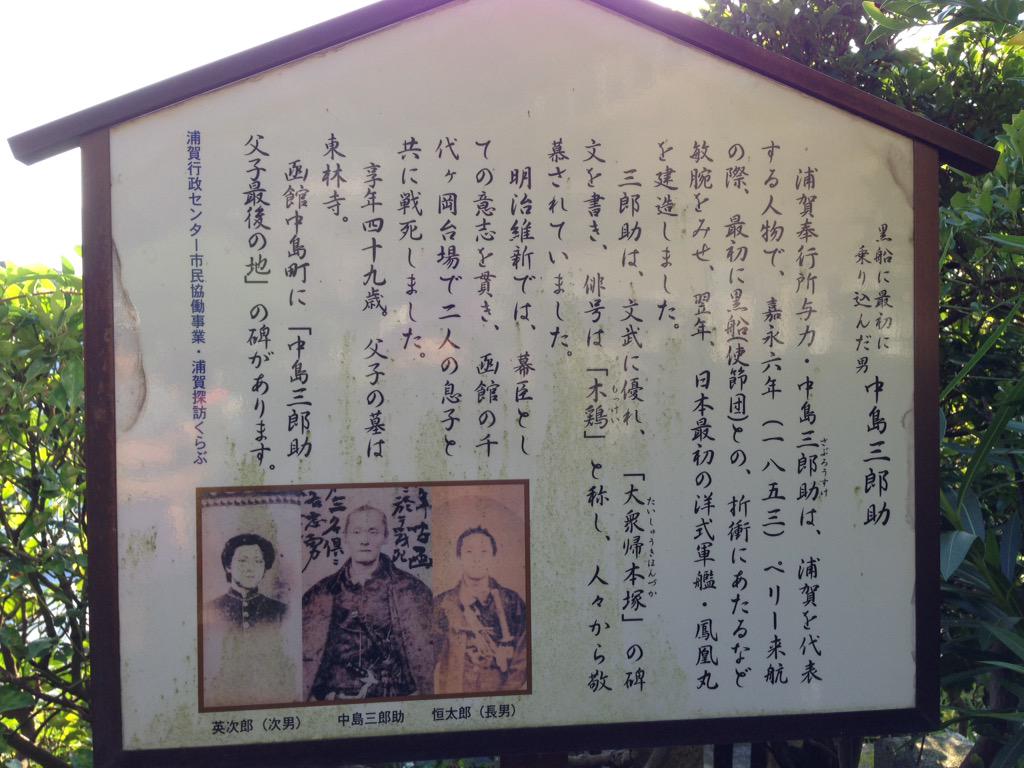 黒船に最初に
乗り込んだ男
中島三郎助
浦賀奉行所与力・中島三郎助は、浦賀を代表
さぶろうすけ
する人物で、嘉永六年(一八五三)ペリー来航
の際、最初に黒船(使節団)との、折衝にあたるなど
敏腕をみせ、翌年、日本最初の洋式軍艦・鳳凰丸
を建造しました。
三郎助は、文武に優れ、「大衆帰本塚」の碑
たいしゅうきほんづか
文を書き、俳号は「木鶏」と称し、人々から敬
もっけい
慕されていました。
明治維新では、幕臣とし
ての意志を貫き、函館の千
代ヶ岡台場で二人の息子と
共に戦死しました。
享年四十九歳。父子の墓は
東林寺。
函館中島町に「中島三郎助
父子最後の地」の碑があります。
浦賀行政センター市民協働事業・浦賀探訪くらぶ
英次郎(次男)
中島三郎助
恒太郎(長男)